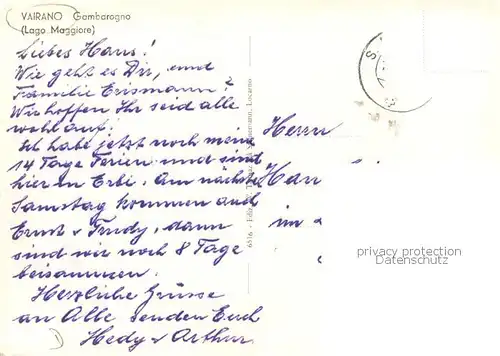 VAIRANO Gambarogno
(Lago Maggiore)
Liebes Hans!
Wie geht es Dir, und
Familie Erismann?
Wir hoffen Ihr seid alle
wohlauf.
Ich habe jetzt noch meine
14 Tage Ferien und sind
hier in Erbi. Am nächste
Samstag kommen auch
Ernst & Trudy, dann
sind wir noch 8 Tage
beisammen.
Herzliche Grüsse
an Alle senden Euch
Hedy & Arthur
6516 - Ediz. Locarno
Herrn
Han
im
privacy protection
Datenschutz